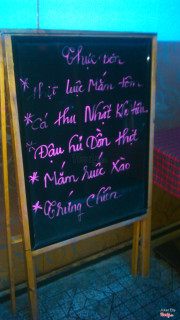 Thực Đơn
* Thịt luộc Mắm tôm
* Cá thu Nhật Kho tộ
* Đậu hũ Dồn thịt
* Mắm ruốc Xào
* Trứng Chiên